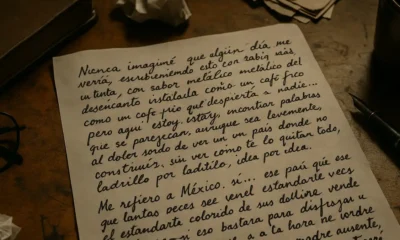 Nunca imaginé que algún día me
vería, escrubieniendo esto con sabiq
un tinta, con sabor metálico metálico del
desencanto instalada como un café frco
como un cofe frio qul despierta a nadie...
pero aquí estoy, estay, encontiar palabras
que se parezcan, aunque sea levemente,
al dolor sordo de ver un país donde no
construír, sin ver cómo te lo quitan todo,
ladrillo por laditilo, idea por idea.
Me refiero a México. sí... ese país que ese
que tantas peces see venel estandarte vecs
el estandarte colorido de sus vende
si eso bastara para disfrgas u
a la hora ne
madre ausente,